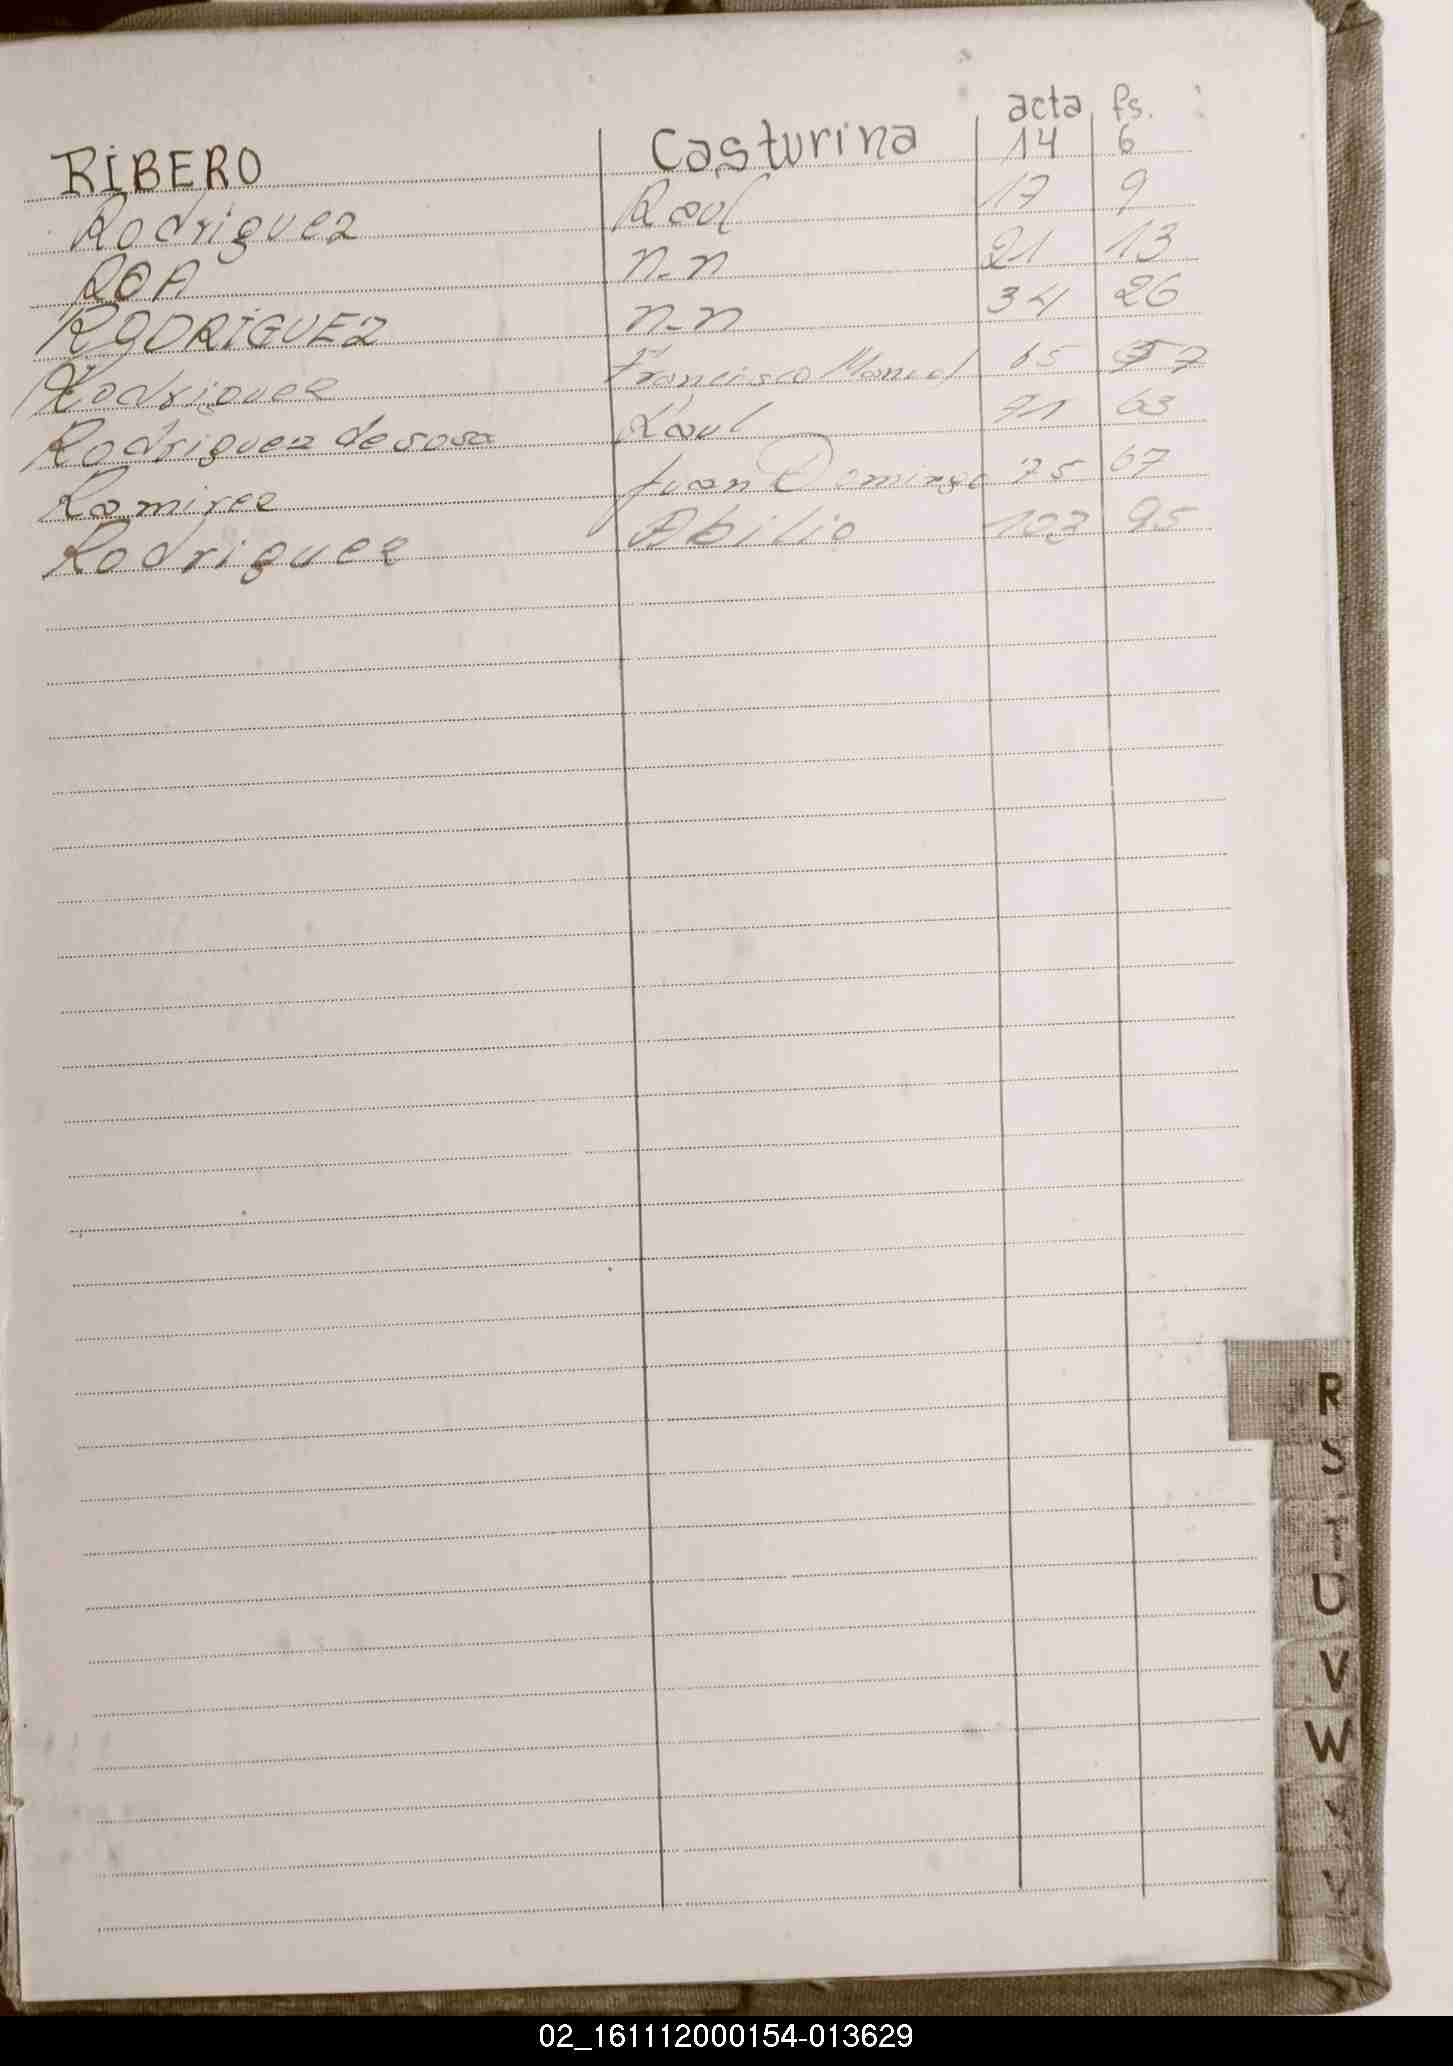 acta fs.
RIBERO Casturina 14 6
Rodriguez Raul 17 9
ROA n.n 21 13
RODRIGUEZ n.n 34 26
Rodriguez Francisco Manuel 65 57
Rodriguez de sosa Raul 71 63
Ramirez Juan Domingo 75 67
Rodriguez Abilio 103 95
R
S
T
U
V
W
Y
02_161112000154-013629